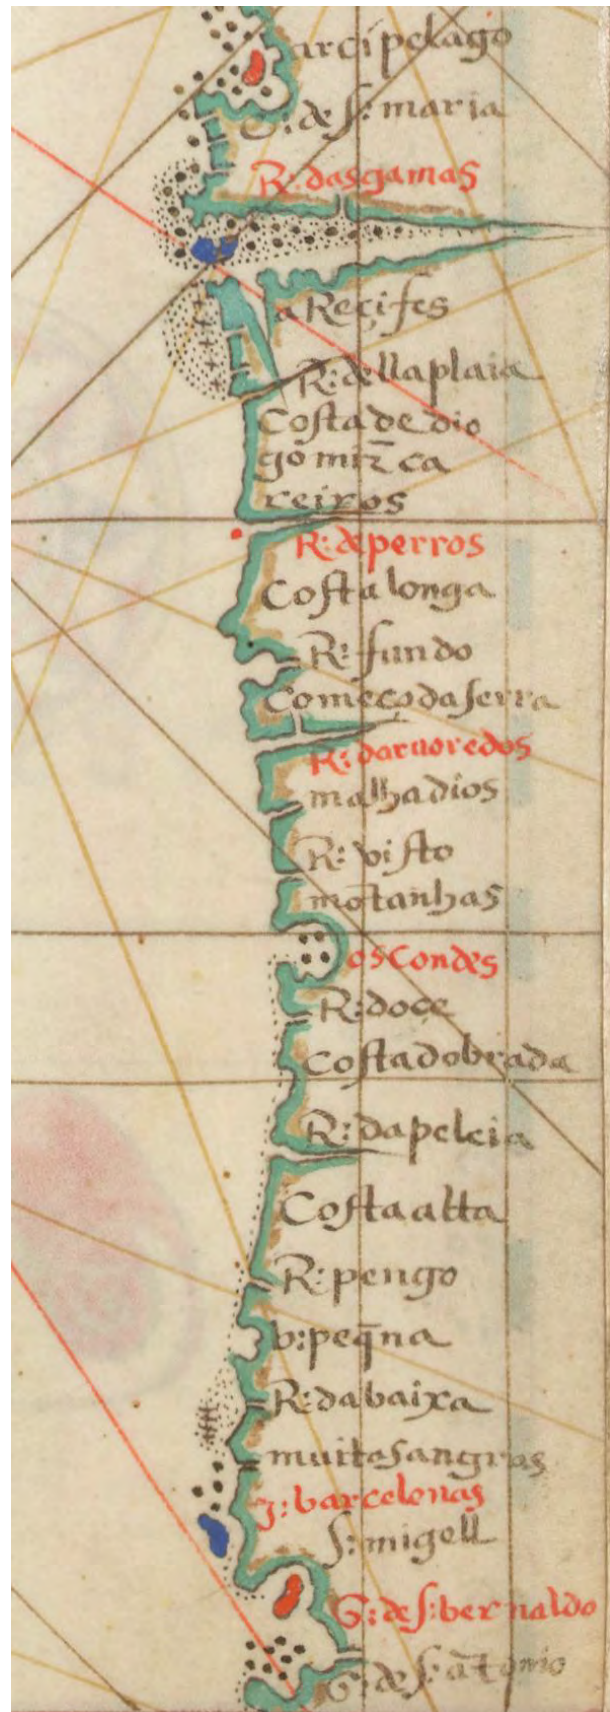 arcipelago
G: de s: maria
R: dasgamas
a Reçifes
R: dellaplaia
Costa de dio
go mrz̃ ca
reiros
R: deperros
Costa longa
R: fundo
Começo da serra
R: daruoredos
malhadios
R: visto
mõtanhas
os Condes
R: doçe
Costa dobrada
R: dapeleia
Costa alta
R: pengo
b: peq̃na
R: dabaixa
muitas angras
j: barcelonas
s: migell
G: de s: bernaldo
G: de s: ãtonio